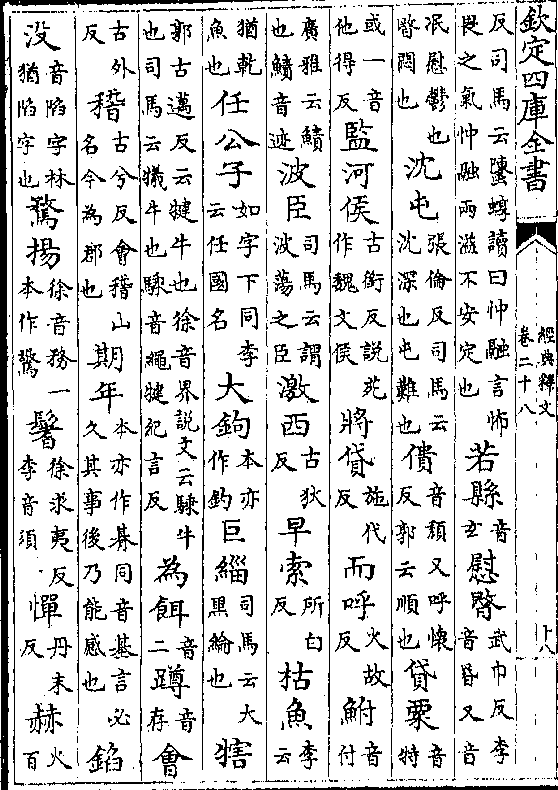 欽定四庫全書 經典釋文 卷二十八 十八
反司馬云䗥蜳讀曰忡融言怖畏之氣忡融兩溢不安定也 若縣 音玄 慰暋 武巾反李音昏又音
泯慰鬱也暋悶也 沈屯 張倫反司馬云沈深也屯難也 僓 音頽又呼懷反郭云順也 貸粟 音特
或一音他得反 監河侯 古銜反說苑作魏文侯 將貸 施代反 而呼 火故反 鮒 音付
廣雅云鰿也鰿音迹 波臣 司馬云謂波蕩之臣 激西 古狄反 早索 所白反 枯魚 李云
猶乾魚也 任公子 如字下同李云任國名 大鉤 本亦作釣 巨緇 司馬云大黑綸也 犗
郭古邁反云犍牛也徐音界說文云騬牛也司馬云犧牛也騬音繩犍紀言反 為餌 音二 蹲 音存 會
古外反 稽 古兮反會稽山名今為郡也 期年 本亦作朞同音基言必久其事後乃能感也 錎
沒 音陷字林猶陷字也 騖揚 徐音務一本作驚 鬐 徐求夷反李音須 憚 丹末反 赫 火百